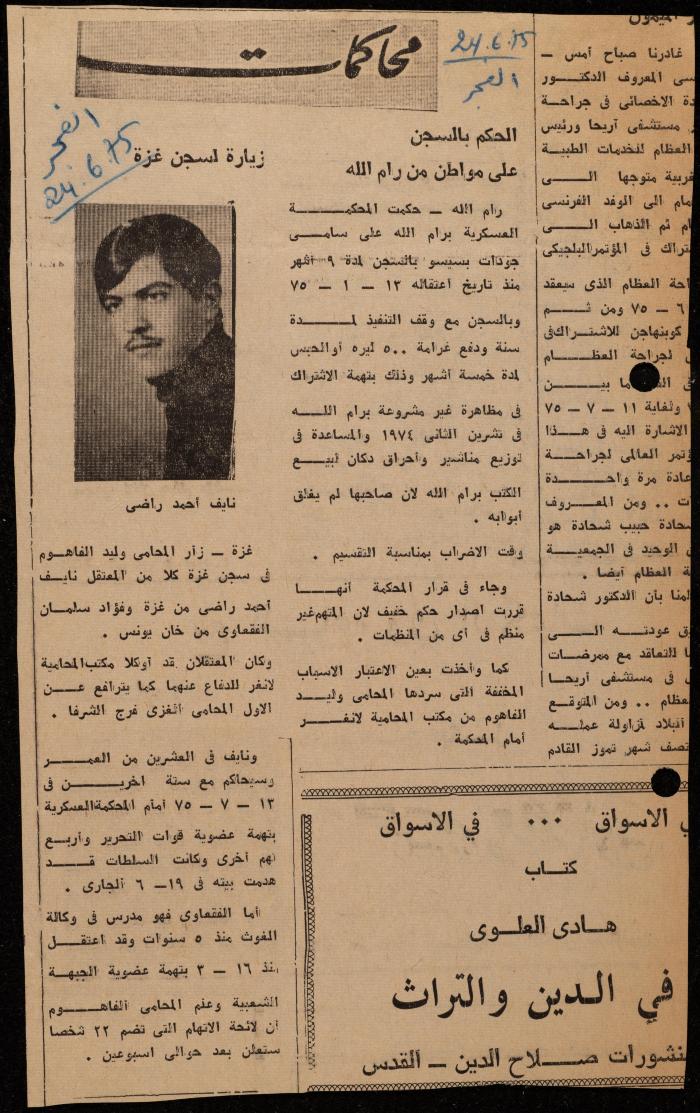 محاكمات
24.6.75
الفجر
الفجر
24.6.75
الحكم بالسجن
على مواطن من رام الله
رام الله – حكمت المحكمة
العسكرية برام الله على سامي
جودات بسيسو بالسجن لمدة ٩ أشهر
منذ تاريخ اعتقاله ١٣ – ١ – ٧٥
وبالسجن مع وقف التنفيذ لمدة
سنة ودفع غرامة ٥٠٠ ليره أو الحبس
لمدة خمسة أشهر وذلك بتهمة الاشتراك
في مظاهرة غير مشروعة برام الله
في تشرين الثاني ١٩٧٤ والمساعدة في
توزيع مناشير وأحراق دكان لبيع
الكتب برام الله لان صاحبها لم يغلق
أبوابه .
وقت الاضراب بمناسبة التقسيم .
وجاء في قرار المحكمة أنها
قررت اصدار حكم خفيف لان المتهم غير
منظم في أى من المنظمات .
كما وأخذت بعين الاعتبار الاسباب
المخففة التى سردها المحامى وليد
الفاهوم من مكتب المحامية لانغر
أمام المحكمة .
زيارة لسجن غزة
نايف أحمد راضى
غزة – زار المحامى وليد الفاهوم
في سجن غزة كلا من المعتقل نايف
أحمد راضى من غزة وفؤاد سلمان
الفقعاوى من خان يونس .
وكان المعتقلان قد أوكلا مكتب المحامية
لانغر للدفاع عنهما كما يترافع عن
الاول المحامى الغزى فرج الشرفا .
ونايف في العشرين من العمر
وسيحاكم مع ستة اخرين في
١٣ – ٧ – ٧٥ أمام المحكمة العسكرية
بتهمة عضوية قوات التحرير وأربع
تهم أخرى وكانت السلطات قد
هدمت بيته في ١٩ – ٦ الجارى .
أما الفقعاوى فهو مدرس في وكالة
الغوث منذ ٥ سنوات وقد اعتقل
منذ ١٦ – ٣ بتهمة عضوية الجبهة
الشعبية وعلم المحامى الفاهوم
أن لائحة الاتهام التى تضم ٢٢ شخصا
ستعلن بعد حوالى اسبوعين .
غادرنا صباح أمس –
المعروف الدكتور
الاخصائى في جراحة
مستشفى أريحا ورئيس
العظام للخدمات الطبية
متوجها الى
الى الوفد الفرنسى
ثم الذهاب الى
في المؤتمر البلجيكى
العظام الذى سيعقد
٦ – ٧٥ ومن ثم
كوبنهاجن للاشتراك في
لجراحة العظام
ما بين
ولغاية ١١ – ٧ – ٧٥
الاشارة اليه في هذا
العالمى لجراحة
مرة واحدة
.. ومن المعروف
شحادة حبيب شحادة هو
الوحيد في الجمعية
العظام أيضا .
بأن الدكتور شحادة
عودته الى
للتعاقد مع ممرضات
في مستشفى أريحا
.. ومن المتوقع
البلاد لمزاولة عمله
شهر تموز القادم
في الاسواق ... في الاسواق
كتاب
هادى العلوى
في الدين والتراث
منشورات صلاح الدين – القدس